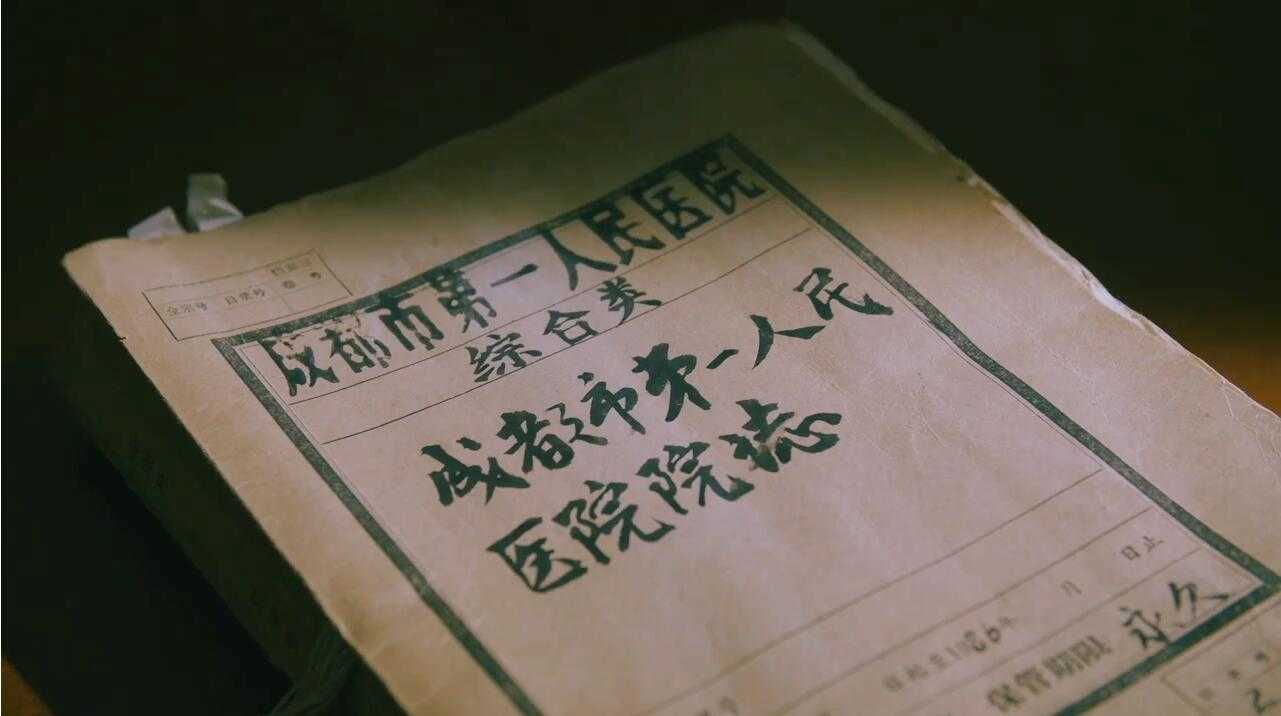 全宗号 目录号 卷号
成都市第一人民医院
综合类
成都市第一人民
医院院誌
月 日止
保管期限 永久